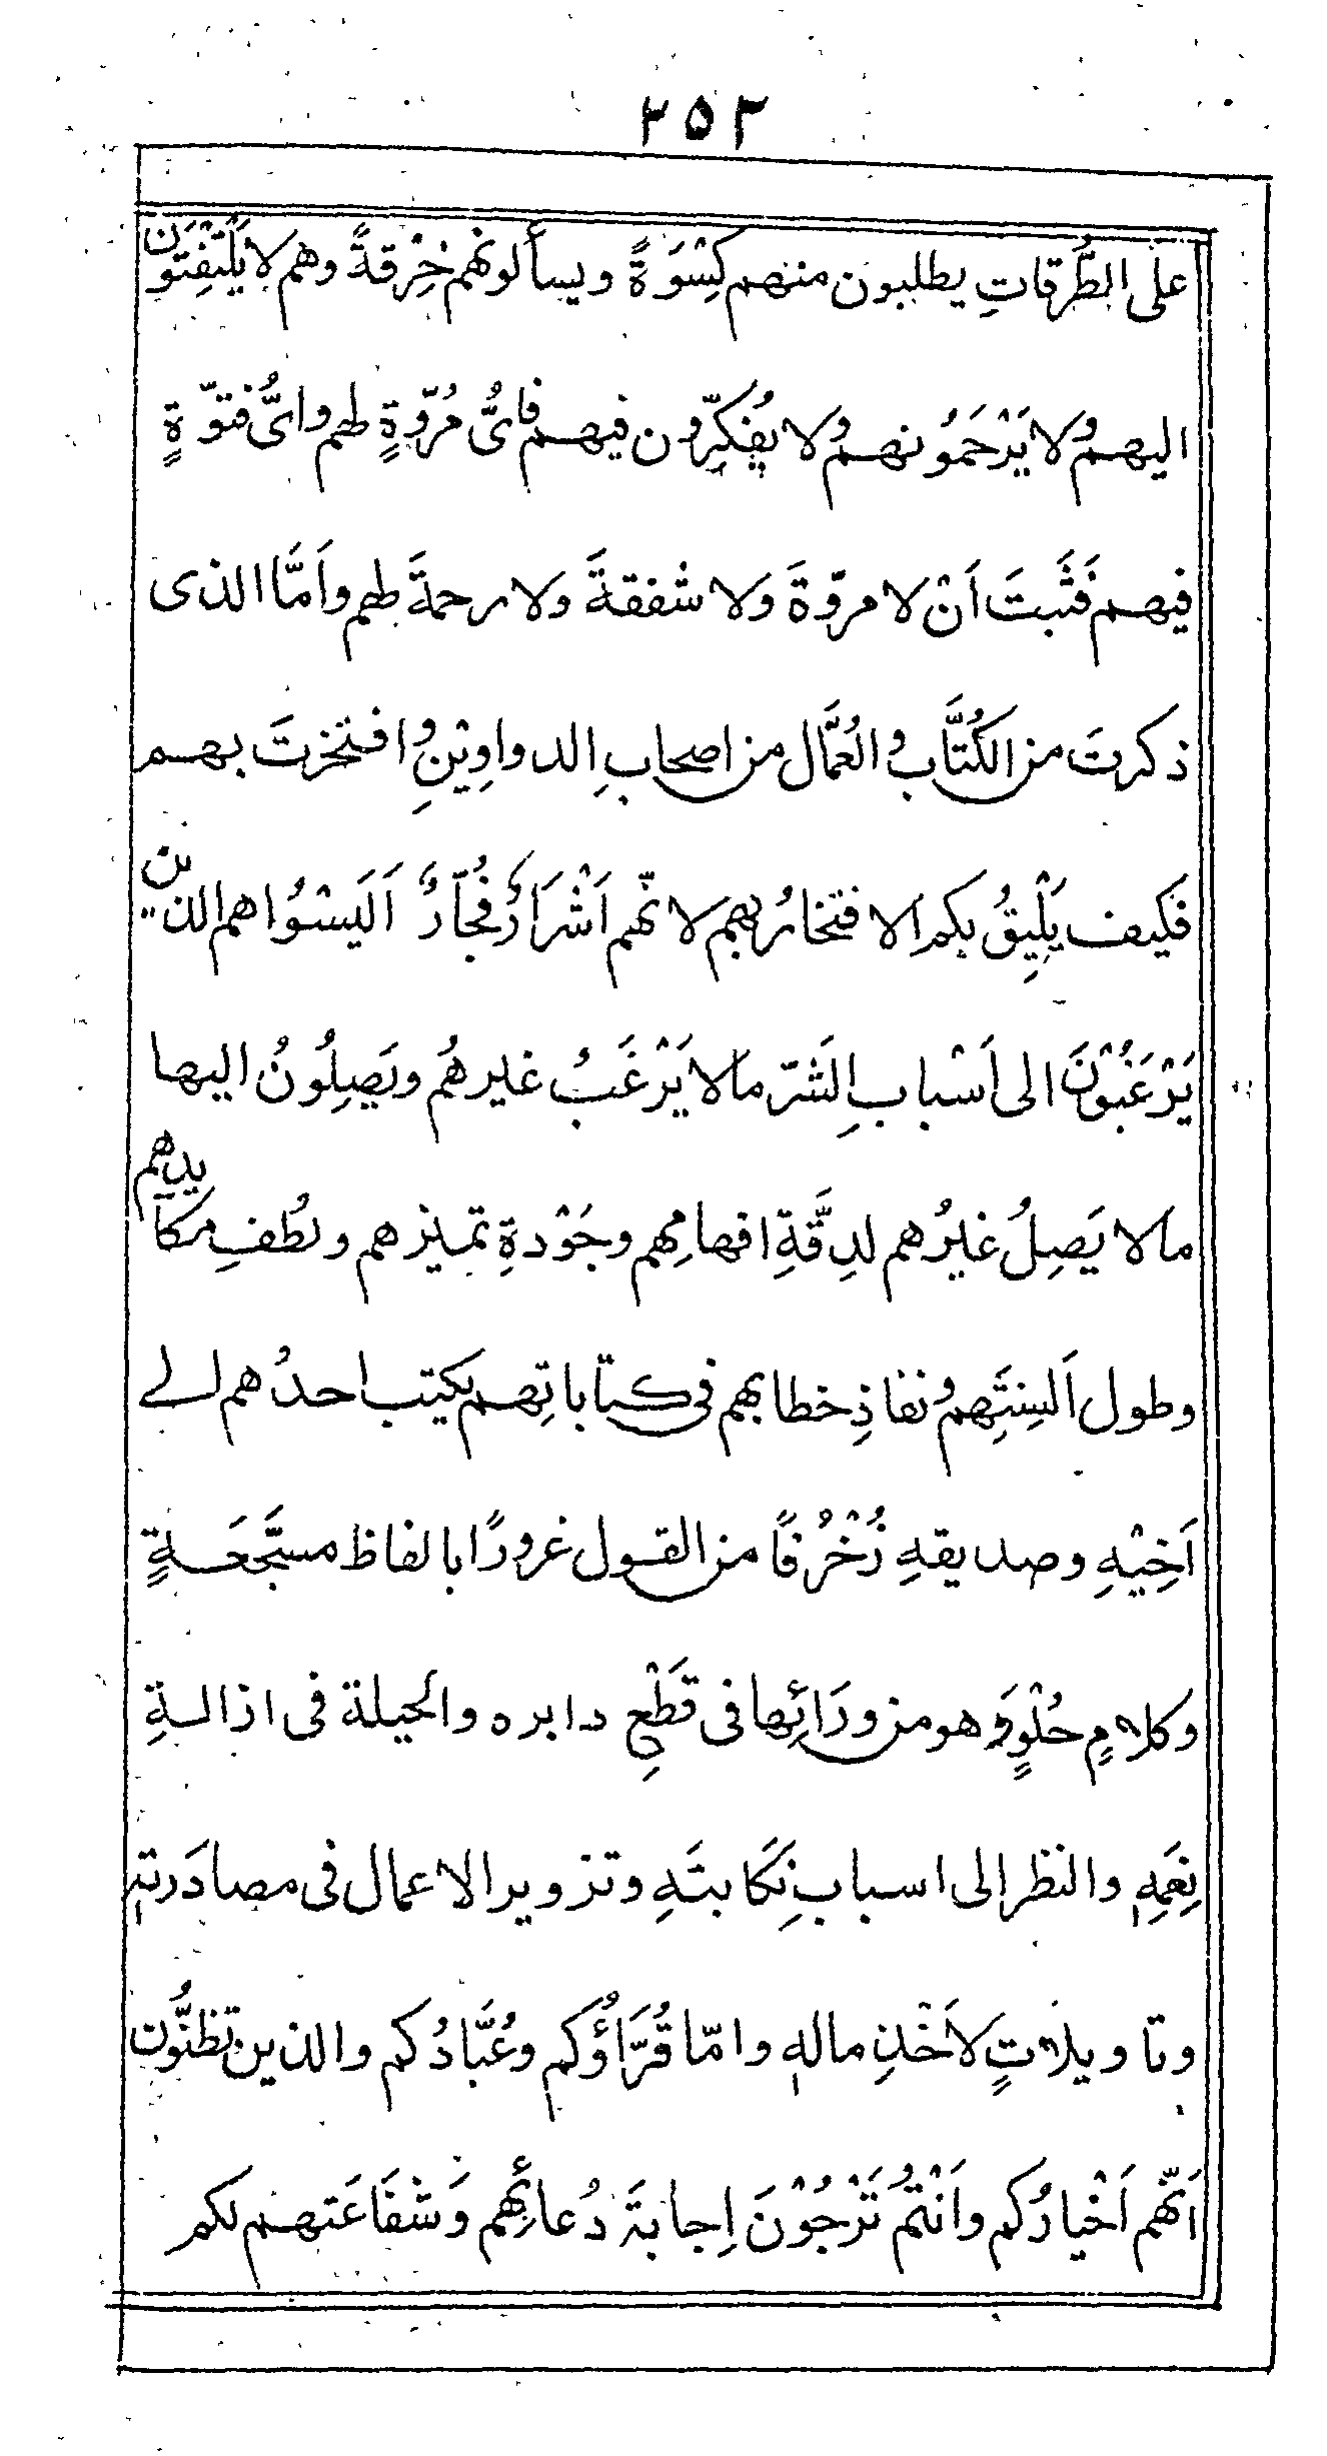 ٢٥٣
على الطُّرقاتِ يطلبون منهم كِسْوَةً ويسألونهم خِرْقةً وهم لا يَلْتفِتُونَ
اليهم ولا يَرْحَمُونهم ولا يُفكِّرون فيهم فاىُّ مُروّةٍ لهم واىُّ فتوّةٍ
فيهم فَثبتَ اَنْ لا مروّةَ وَلا شفقةَ ولا رحمةَ لهم واَمَّا الذى
ذكرتَ من الكُتَّاب والعُمَّال من اصحابِ الدواوِيْنِ وافتخرتَ بهم
فَكيف يَلِيْقُ بكم الافتخارُ بهم لانّهم اَشْرَارٌ فُجّارٌ اَلَيسُوْا هم الذين
يَرْغَبُوْنَ الى اَسْبابِ الشَرّ ما لا يَرْغَبُ غيرهُم ويَصِلُونُ اليها
ما لا يَصِلُ غيرُهم لدِقَّةِ افهامِهم وجَوْدةِ تميزهم ولُطفِ مكايدهم
وطول اَلسِنتِهم ونفاذِ خطابهم فى كتاباتِهم يكتب احدُهم الے
اَخِيْهِ وصديقهِ زُخْرُفًا من القول غرورًا بالفاظ مسجَّعَةٍ
وكلامٍ حُلْوٍ وَهو من ورَائِها فى قَطْعِ دابره والحيلة فى ازالةِ
نِعَمِهٖ والنظر الى اسبابِ نِكَابتَهِ وتزوير الاعمال فى مصادَرتهٖ
وتاويلاتٍ لاَخْذِ مالهٖ وامّا قُرَّاؤُكم وعُبَّادُكم والذين تظنُّون
اَنّهم اَخْيارُكم واَنْتُم تَرْجُوْنَ اِجابةَ دُعائِهم وَشفَاعَتهم لكم